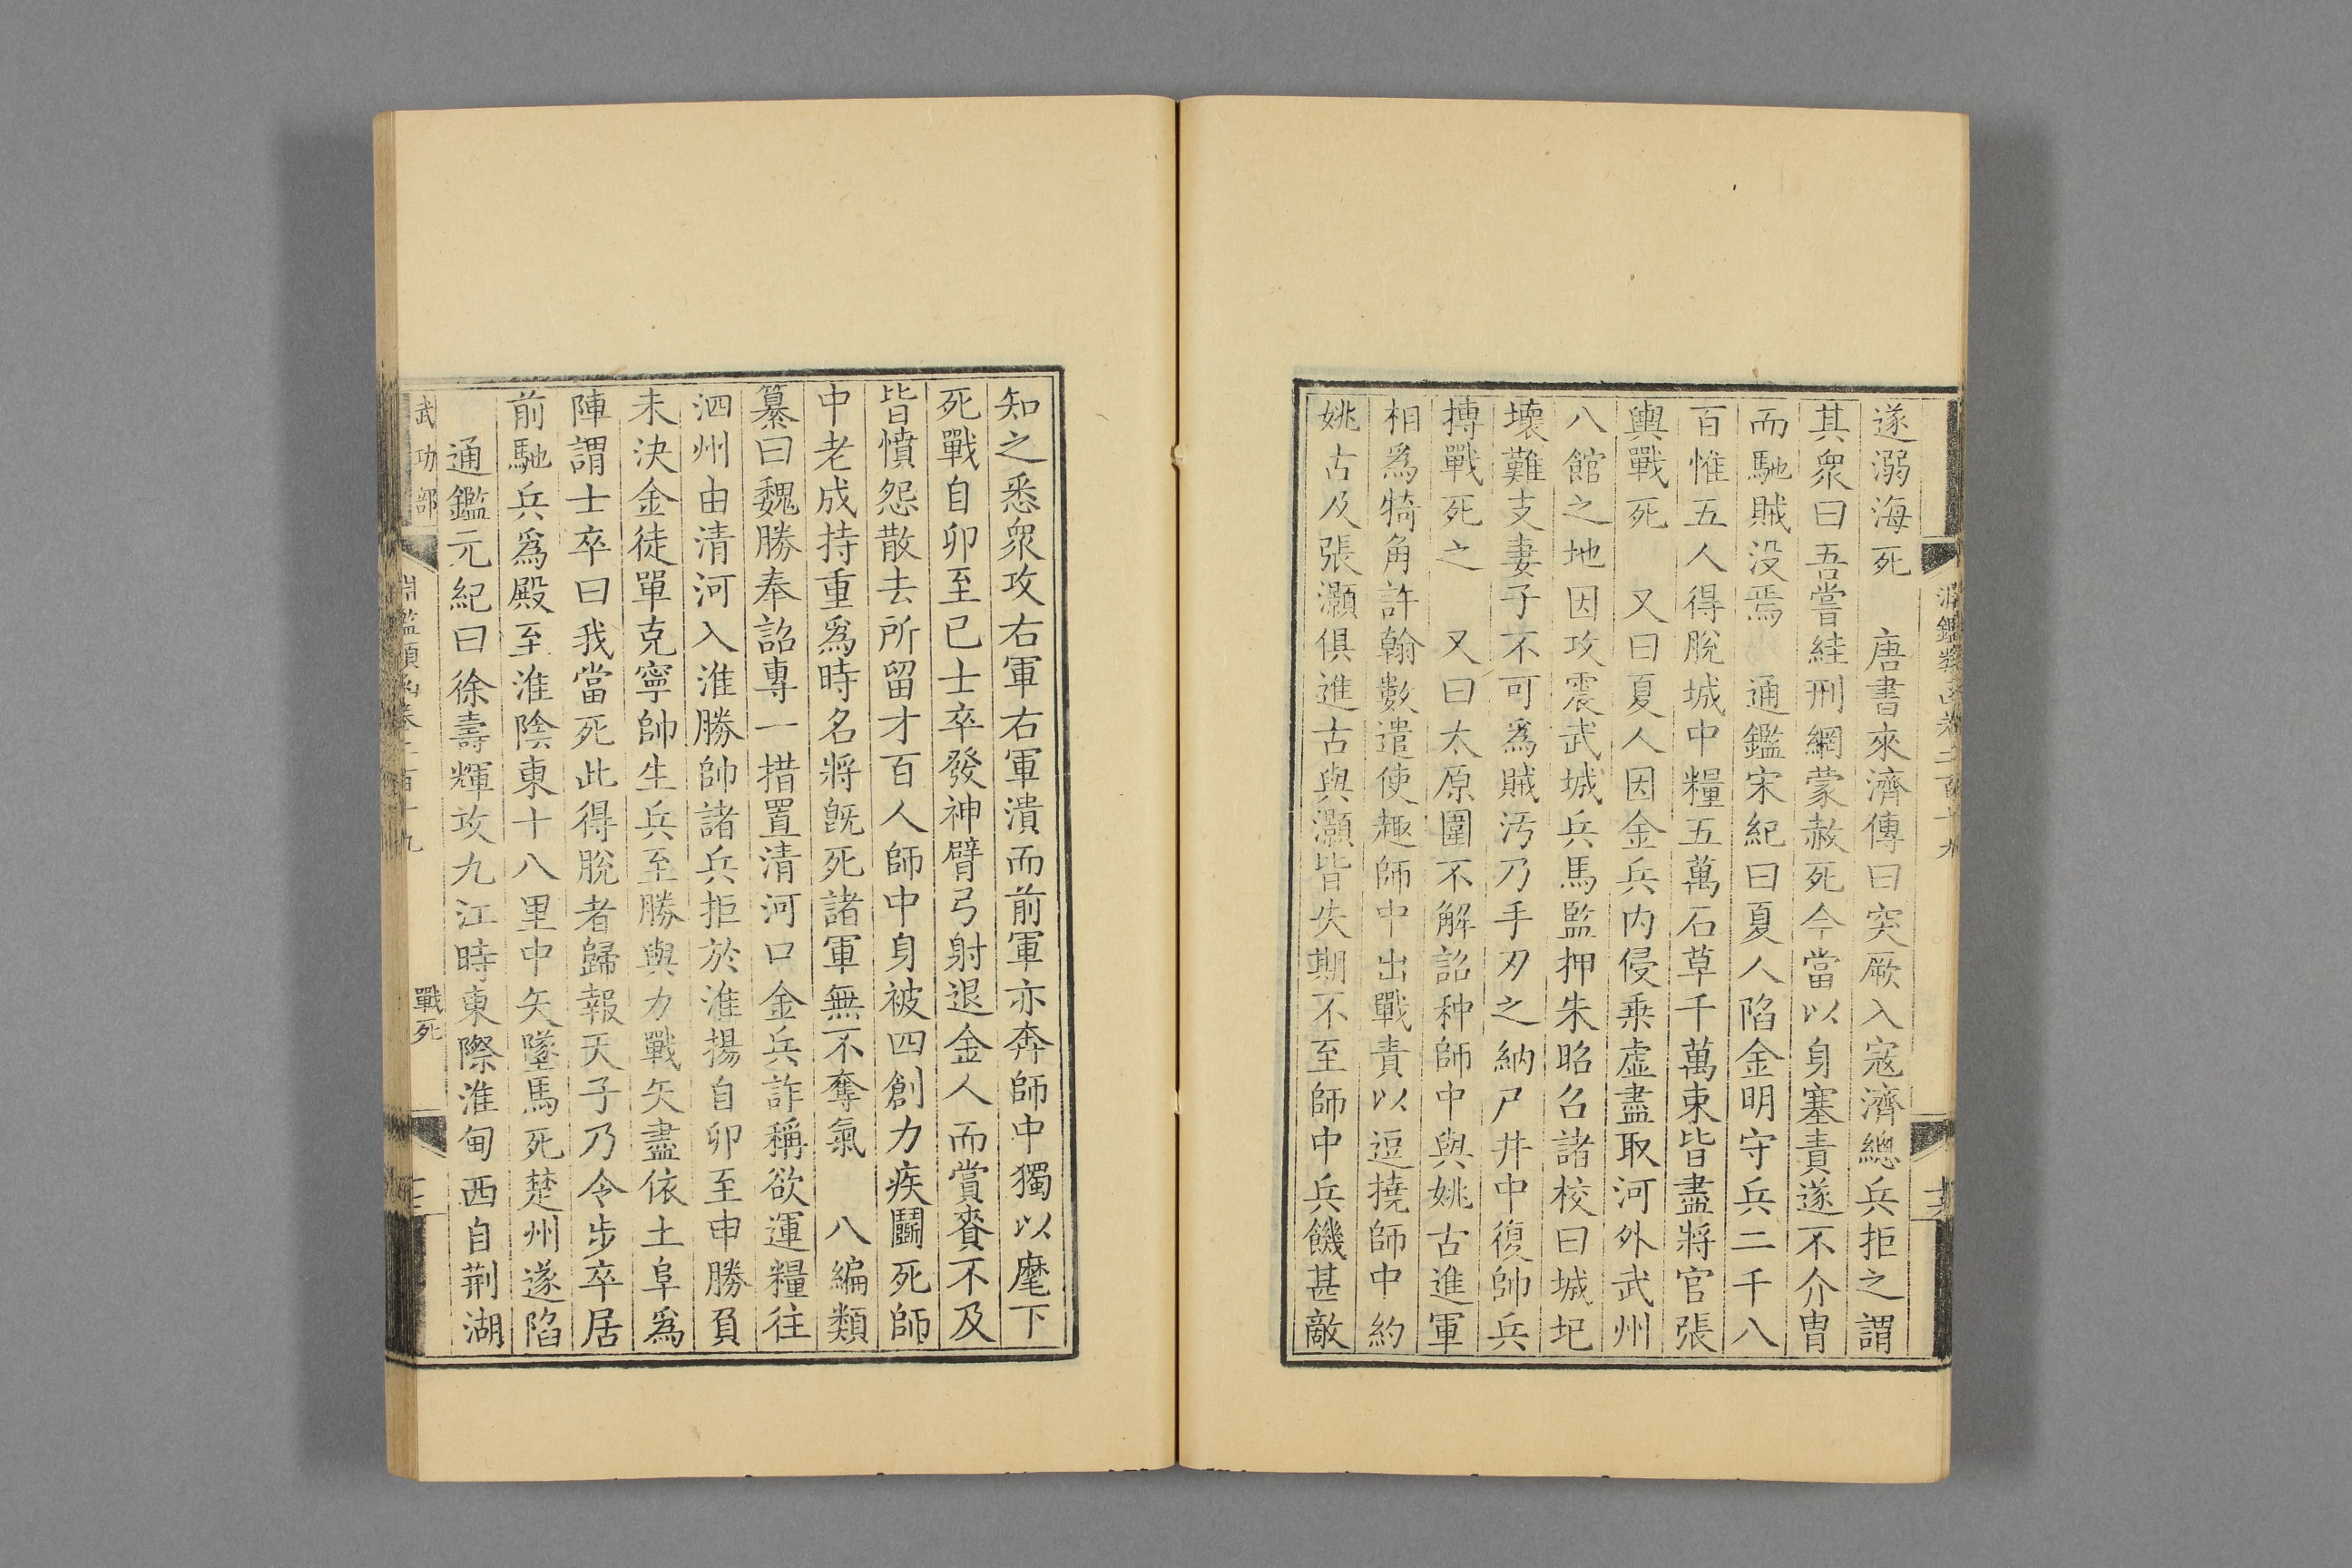 遂溺海死　唐書來濟傳曰突厥入寇濟總兵拒之謂
其衆曰吾嘗絓刑網蒙赦死今當以身塞責遂不介冑
而馳賊没焉　通鑑宋紀曰夏人陷金明守兵二千八
百惟五人得脫城中糧五萬石草千萬束皆盡將官張
輿戰死　又曰夏人因金兵内侵乗虚盡取河外武州
八館之地因攻震武城兵馬監押朱昭召諸校曰城圮
壞難支妻子不可爲賊汚乃手刃之納尸井中復帥兵
搏戰死之　又曰太原圍不解詔种師中與姚古進軍
相爲犄角許翰數遣使趣師中出戰責以逗撓師中約
姚古及張灝俱進古與灝皆失期不至師中兵饑甚敵
知之悉衆攻右軍右軍潰而前軍亦奔師中獨以麾下
死戰自卯至巳士卒發神臂弓射退金人而賞賚不及
皆憤怨散去所留才百人師中身被四創力疾鬭死師
中老成持重爲時名將旣死諸軍無不奪氣　八編類
纂曰魏勝奉詔專一措置清河口金兵詐稱欲運糧往
泗州由清河入淮勝帥諸兵拒於淮揚自卯至申勝負
未決金徒單克寧帥生兵至勝與力戰矢盡依土阜爲
陣謂士卒曰我當死此得脫者歸報天子乃令步卒居
前馳兵爲殿至淮陰東十八里中矢墜馬死楚州遂陷
通鑑元紀曰徐壽輝攻九江時東際淮甸西自荆湖
武功部　淵鑑類函卷二百十九　戰死